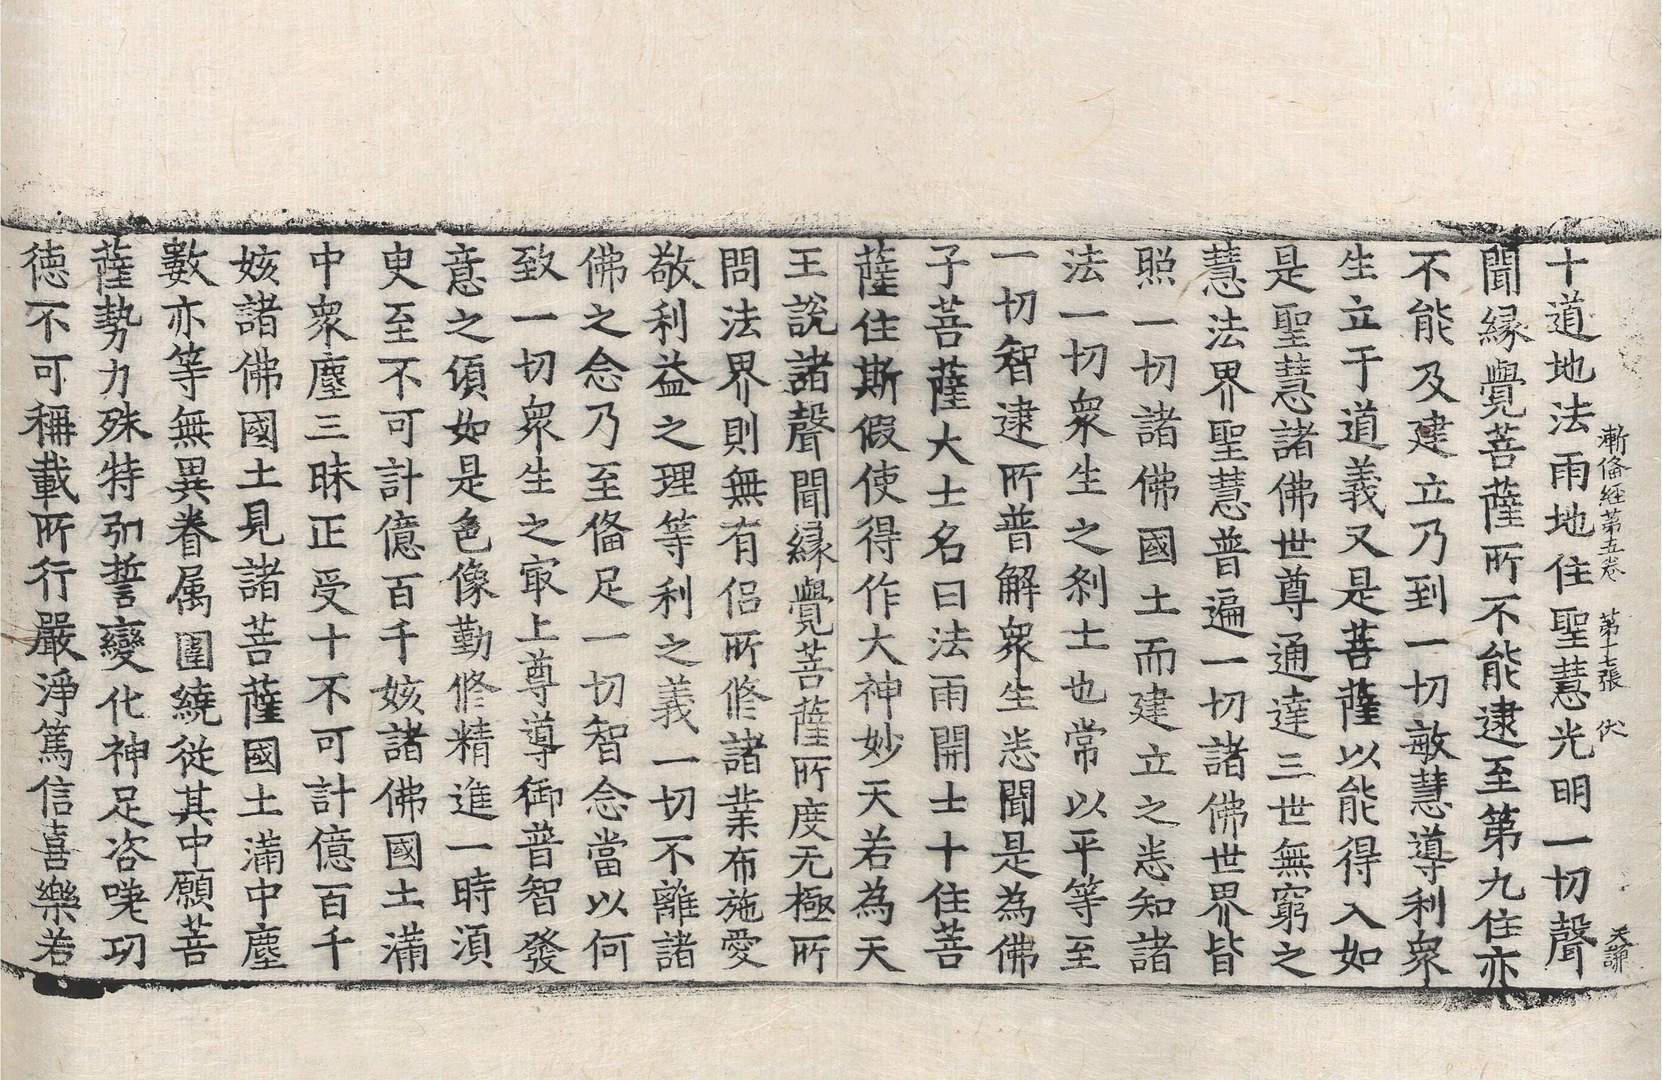 漸俻経第五卷　第十七張　伏
天謙
十道地法雨地住聖慧光明一切聲
聞緣覺菩薩所不能逮至第九住亦
不能及建立乃到一切敏慧導利衆
生立于道義又是菩薩以能得入如
是聖慧諸佛世尊通達三世無窮之
慧法界聖慧普遍一切諸佛世界皆
照一切諸佛國土而建立之悉知諸
法一切衆生之刹土也常以平等至
一切智逮所普解衆生悉聞是為佛
子菩薩大士名曰法雨開士十住菩
薩住斯假使得作大神妙天若為天
王說諸聲聞緣覺菩薩所度无極所
問法界則無有侶所修諸業布施愛
敬利益之理等利之義一切不離諸
佛之念乃至俻足一切智念當以何
致一切衆生之㝡上尊導御普智發
意之頃如是色像勤修精進一時須
臾至不可計億百千姟諸佛國土滿
中衆塵三昧正受十不可計億百千
姟諸佛國土見諸菩薩國土滿中塵
數亦等無異眷属圍繞從其中願菩
薩勢力殊特弘誓變化神足咨嗟功
德不可稱載所行嚴淨篤信喜樂若